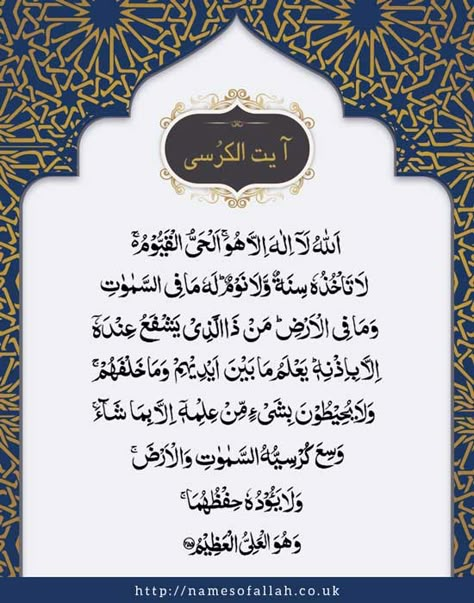 آیت الکرُسی
اَللّٰهُ لَآ اِلٰهَ اِلَّا هُوَۚ اَلۡحَىُّ الۡقَيُّوۡمُۚ
لَا تَاۡخُذُهٗ سِنَةٌ وَّلَا نَوۡمٌ‌ؕ لَهٗ مَا فِى السَّمٰوٰتِ
وَمَا فِى الۡاَرۡضِ‌ؕ مَنۡ ذَا الَّذِىۡ يَشۡفَعُ عِنۡدَهٗۤ
اِلَّا بِاِذۡنِهٖ‌ؕ يَعۡلَمُ مَا بَيۡنَ اَيۡدِيۡهِمۡ وَمَا خَلۡفَهُمۡۚ
وَلَا يُحِيۡطُوۡنَ بِشَىۡءٍ مِّنۡ عِلۡمِهٖۤ اِلَّا بِمَا شَآءَۚ
وَسِعَ كُرۡسِيُّهُ السَّمٰوٰتِ وَالۡاَرۡضَۚ
وَلَا يَـــُٔوۡدُهٗ حِفۡظُهُمَاۚ
وَهُوَ الۡعَلِىُّ الۡعَظِيۡمُ ﴿۲۵۵﴾
http://namesofallah.co.uk